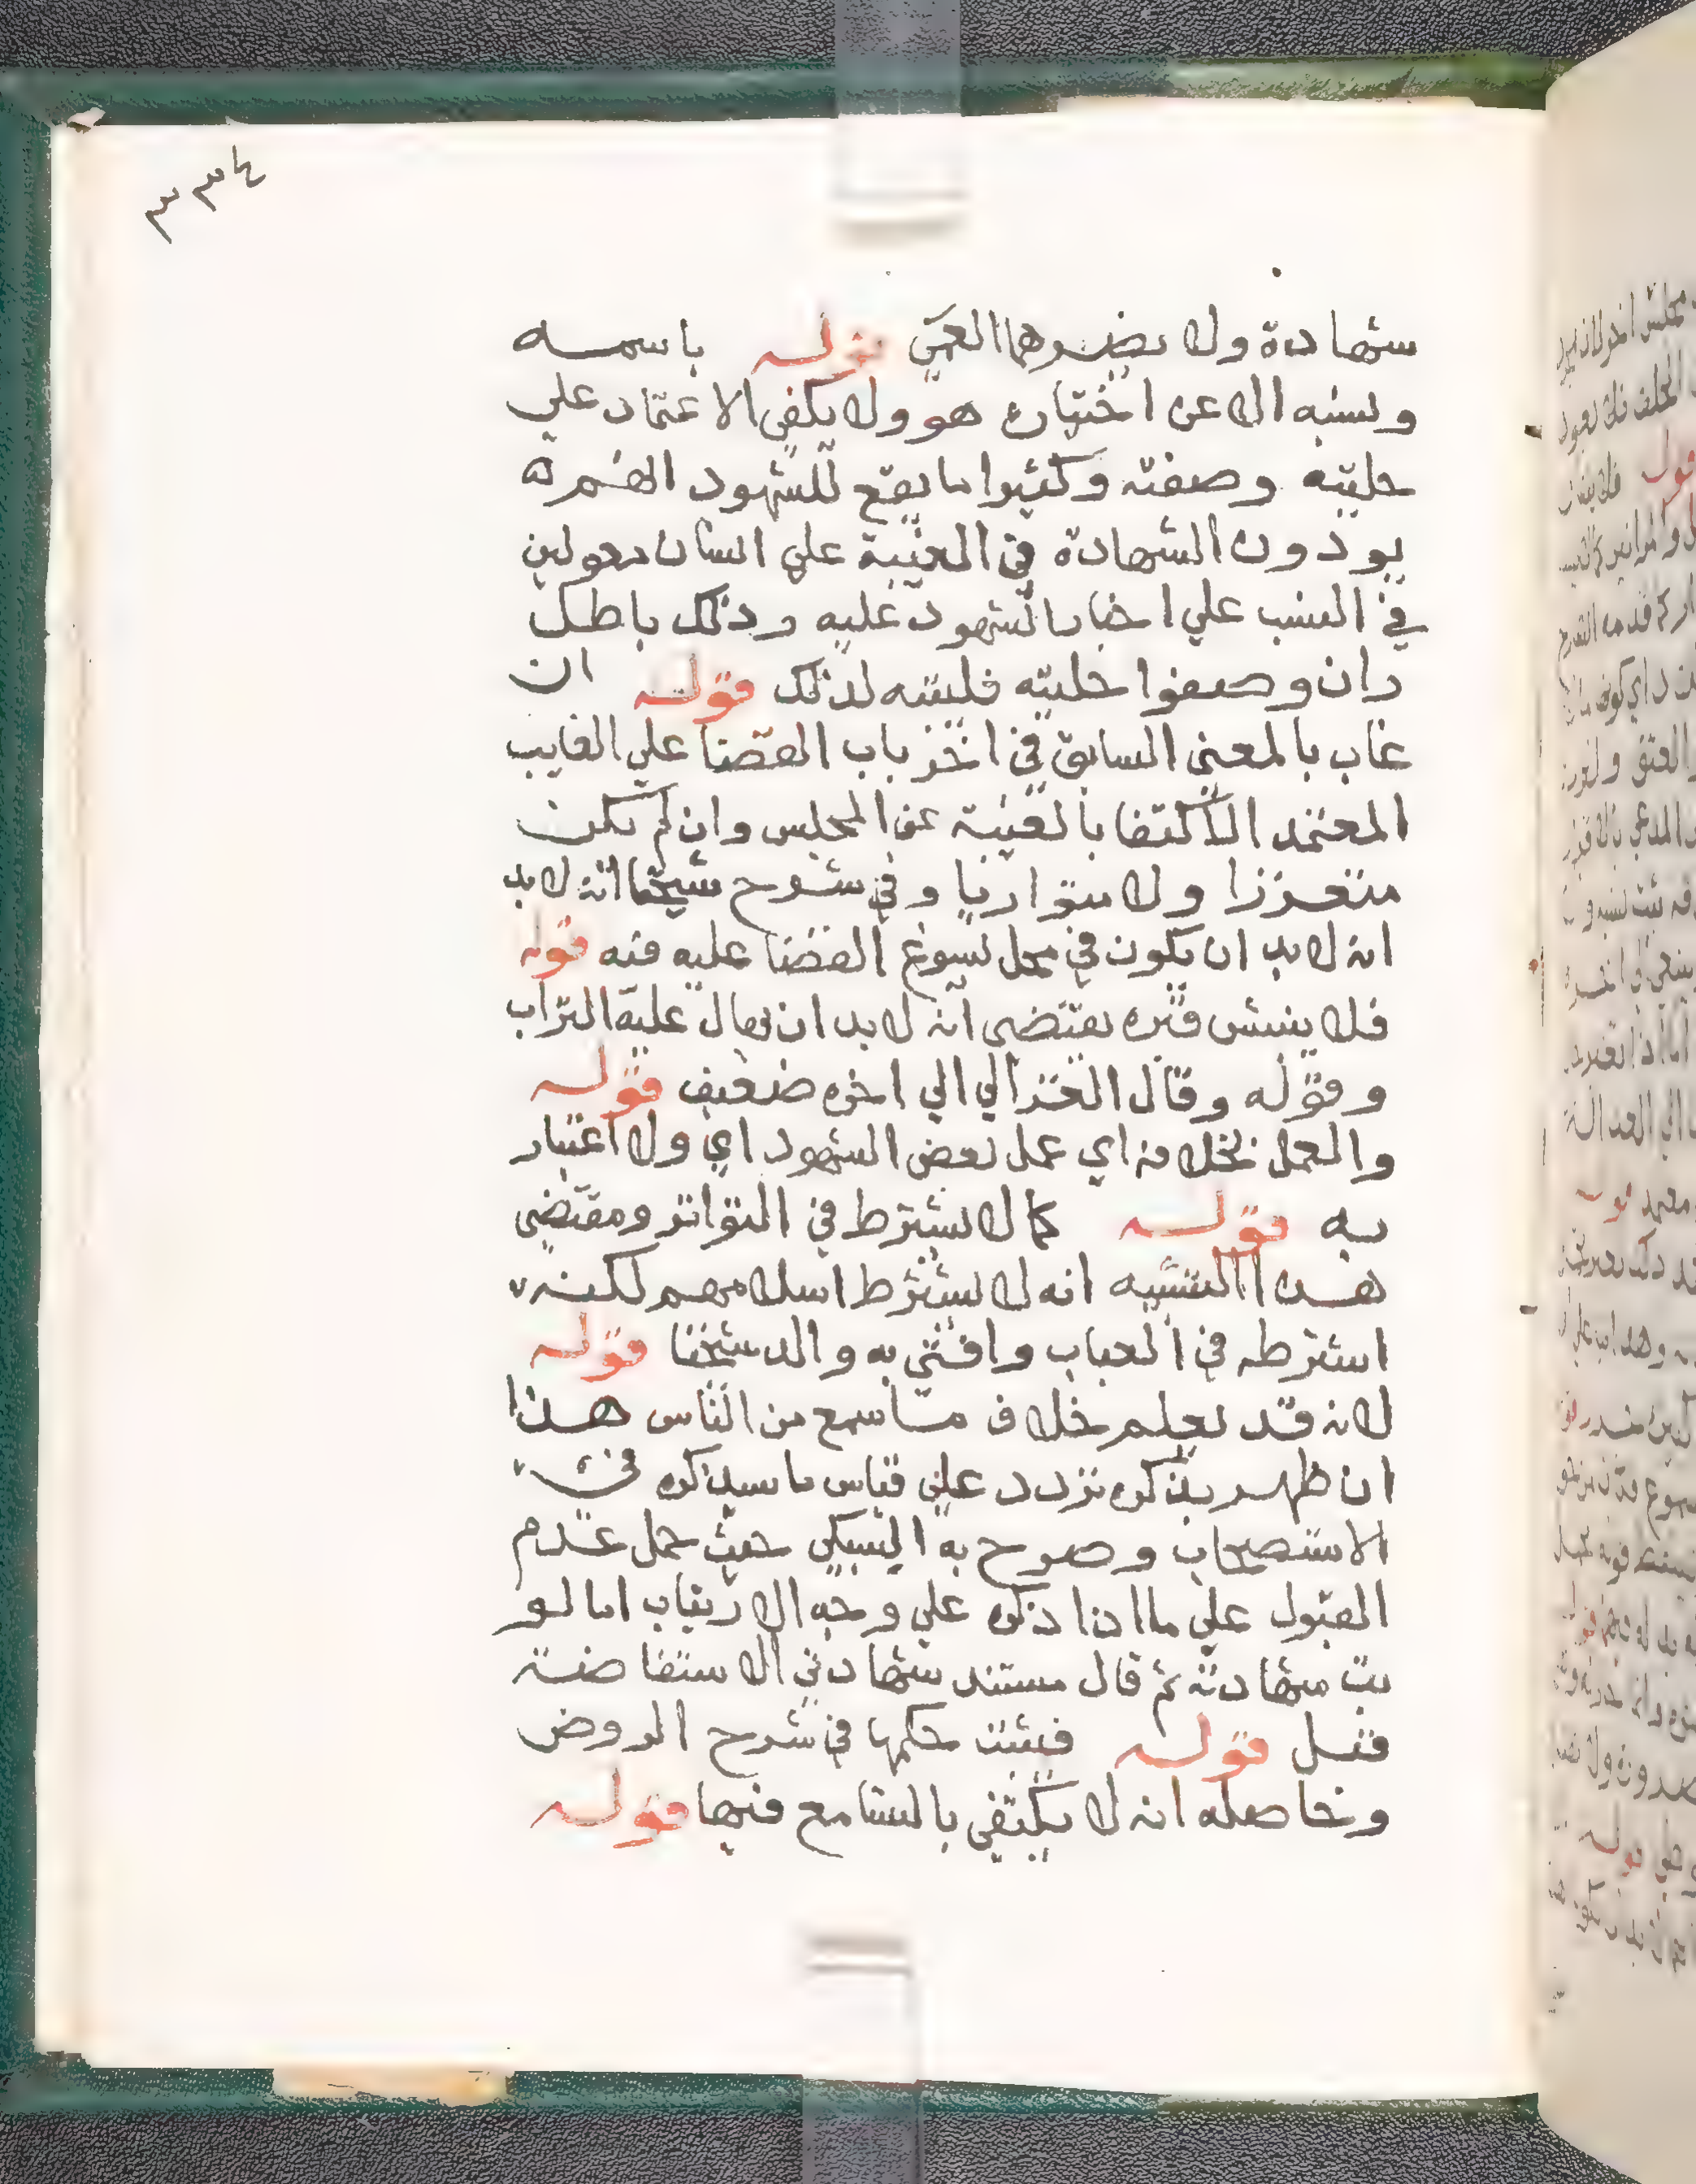 ٣٣٤
شهادة ولا يضرهما العمى قوله باسمه
ونسبه الا عن اختياره هو ولا يكفي الاعتماد علي
حليته وصفته وكثيرا ما يقع للشهود انهم
يودون الشهادة في الغيبة علي انسان معولين
في النسب علي اخبار المشهود عليه وذلك باطل
وان وصفوا حليته فليتنبه لذلك قوله ان
غاب بالمعني السابق في اخر باب القضا علي الغايب
المعتمد الاكتفا بالغيبة عن المجلس وان لم تكن
متعززا ولا متواريا وفي شرح شيخنا انه لا بد
انه لا بد ان يكون في محل تسوغ القضا عليه فيه قوله
فلا ينبش قبره يقتضي انه لا بد ان يهال عليه التراب
وقوله وقال الغزالي الي اخره ضعيف قوله
والعمل بخلافه اي عمل بعض الشهود اي ولا اعتبار
به قوله كما لا يشترط في التواتر ومقتضي
هذا التشبيه انه لا يشترط اسلامهم لكنه
اشترطه في العباب وافتي به والد شيخنا قوله
لانه قد يعلم خلاف ما سمع من الناس هذا
ان ظهر بذكره تردد علي قياس ما سيذكره في
الاستصحاب وصرح به السبكي حيث حمل عدم
القبول علي ما اذا ذكره علي وجه الارتياب اما لو
بت شهادته ثم قال مستند شهادتي الاستفاضة
قبل قوله فيثبت حكمها في شرح الروض
وحاصله انه لا يكتفي بالتسامع فيها قوله